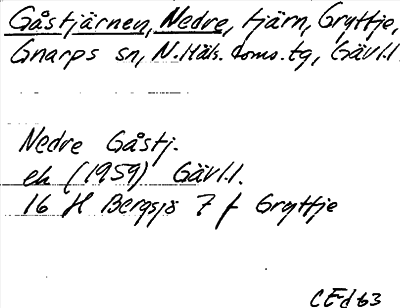 Gåstjärnen, Nedre, tjärn, Gryttje,
Gnarps sn, N. Häls. doms. tg, Gävl.l.
Nedre Gåstj.
ek (1959) Gävl.l.
16 H Bergsjö 7 f Gryttje
CEd 63